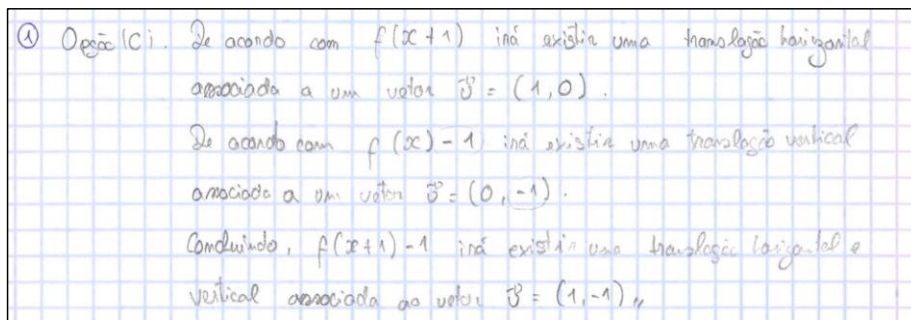 ① Opção (C). De acordo com f(x+1) irá existir uma translação horizontal
associada a um vetor v⃗ = (1,0).
De acordo com f(x)-1 irá existir uma translação vertical
associada a um vetor v⃗ = (0,-1).
Concluindo, f(x+1)-1 irá existir uma translação horizontal e
vertical associada ao vetor v⃗ = (1,-1) //